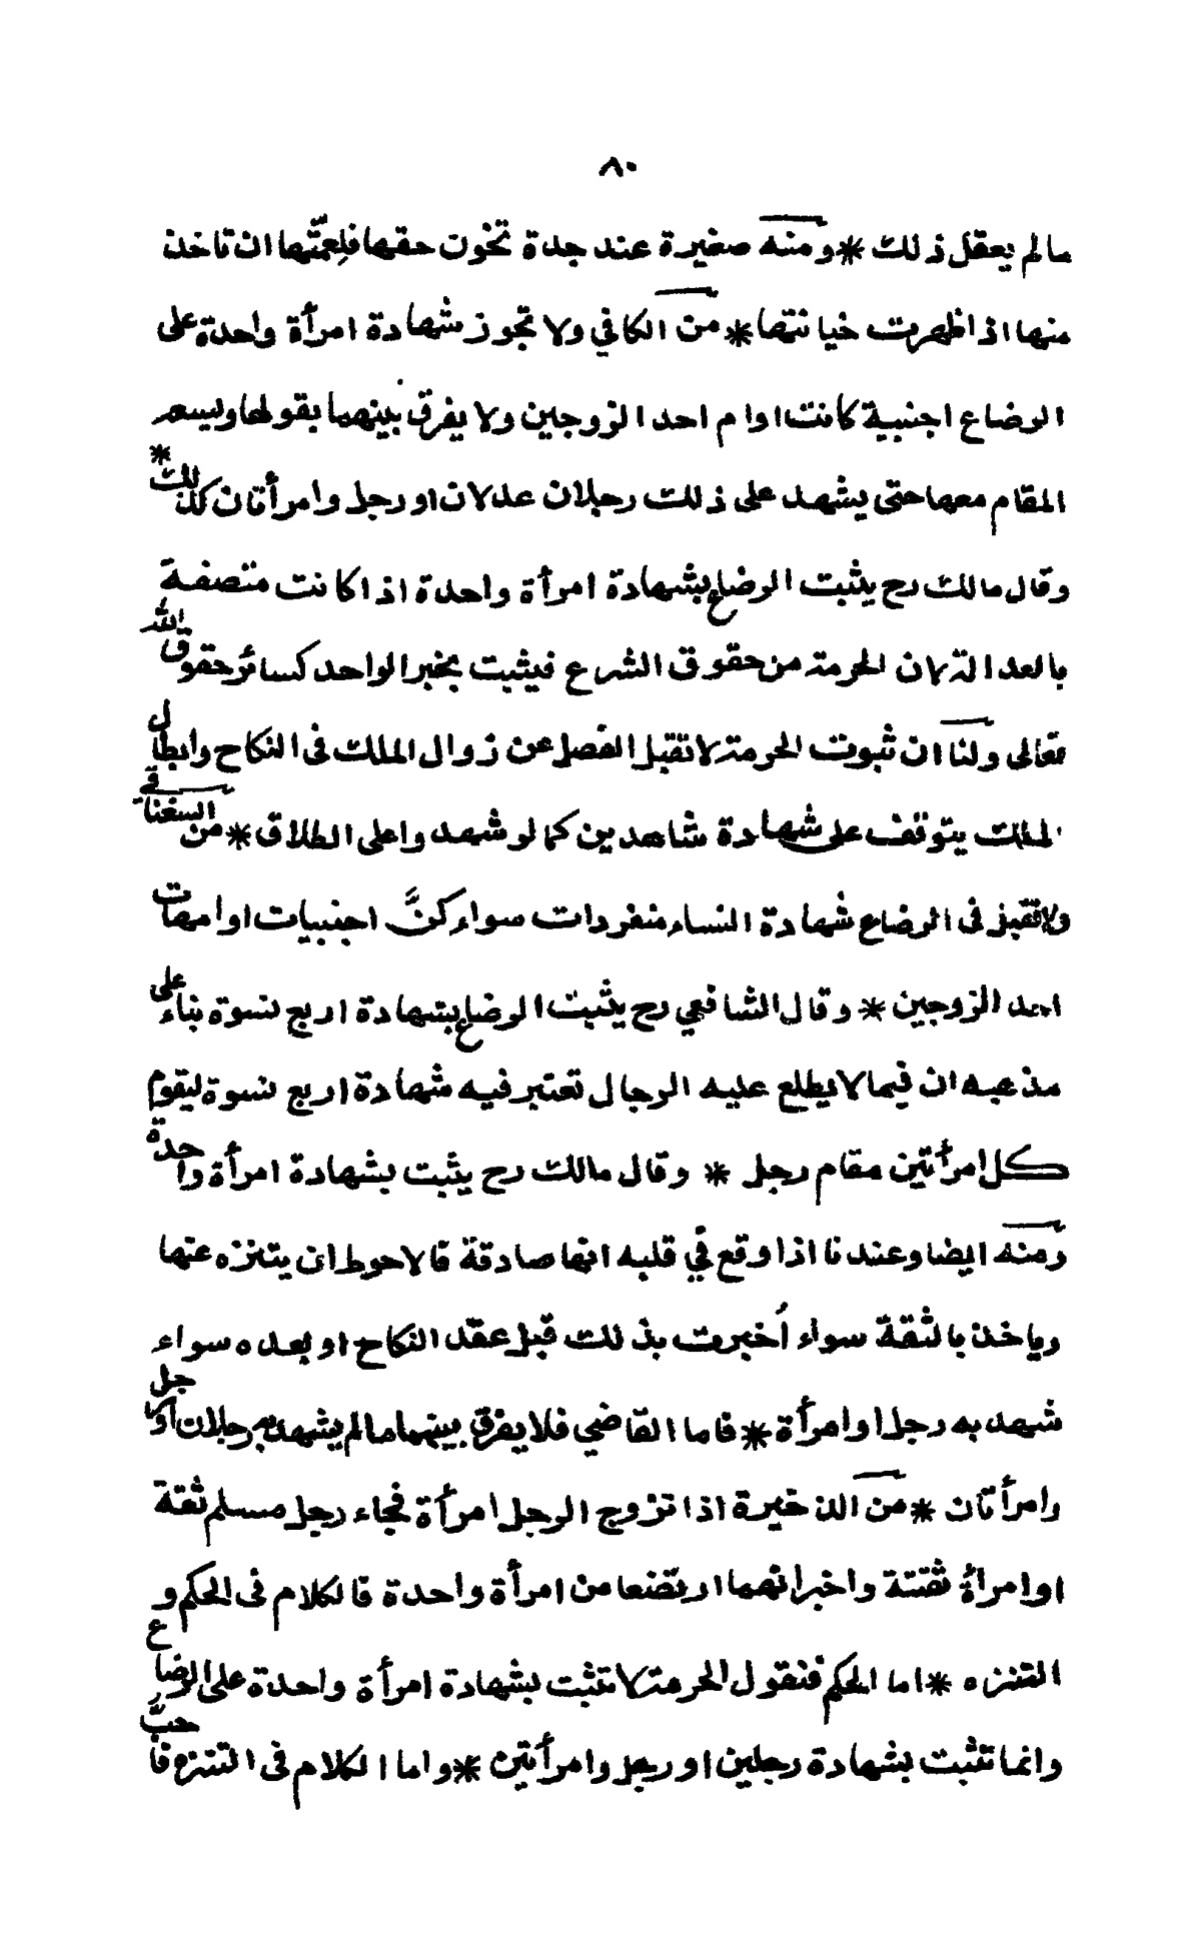 ٨٠
مالم يعقل ذلك * ومنه صغيرة عند جدة تخون حقها فلعمّتها ان تاخذ
منها اذا ظهرت خيانتها * من الكافي ولا تجوز شهادة امرأة واحدة على
الرضاع اجنبية كانت او ام احد الزوجين ولا يفرق بينهما بقولها ويسعه
المقام معها حتى يشهد على ذلك رجلان عدلان او رجل وامرأتان كذلك *
وقال مالك رح يثبت الرضاع بشهادة امرأة واحدة اذا كانت متصفة
بالعدالة لان الحرمة من حقوق الشرع فيثبت بخبر الواحد كسائر حقوق الله
تعالى ولنا ان ثبوت الحرمة لا تقبل الفصل عن زوال الملك فى النكاح وابطال
الملك يتوقف على شهادة شاهدين كما لو شهد واعلى الطلاق * من السغناقي
ولا تقبل فى الرضاع شهادة النساء منفردات سواء كنَّ اجنبيات او امهات
احد الزوجين * وقال الشافعي رح يثبت الرضاع بشهادة اربع نسوة بناء على
مذهبه ان فيما لا يطلع عليه الرجال تعتبر فيه شهادة اربع نسوة ليقوم
كل امرأتين مقام رجل * وقال مالك رح يثبت بشهادة امرأة واحدة
ومنه ايضا وعندنا اذا وقع في قلبه انها صادقة فالاحوط ان يتنزه عنها
وياخذ بالثقة سواء أُخبرت بذلك قبل عقد النكاح او بعده سواء
شهد به رجل او امرأة * فاما القاضي فلا يفرق بينهما مالم يشهد به رجلان او رجل
وامرأتان * من الذخيرة اذا تزوج الرجل امرأة فجاء رجل مسلم ثقة
او امرأة ثقتة واخبر انهما ارتضعا من امرأة واحدة فالكلام فى الحكم و
التنزه * اما الحكم فنقول الحرمة لا تثبت بشهادة امرأة واحدة على الرضاع
وانما تثبت بشهادة رجلين او رجل وامرأتين * واما الكلام فى التنزه فا